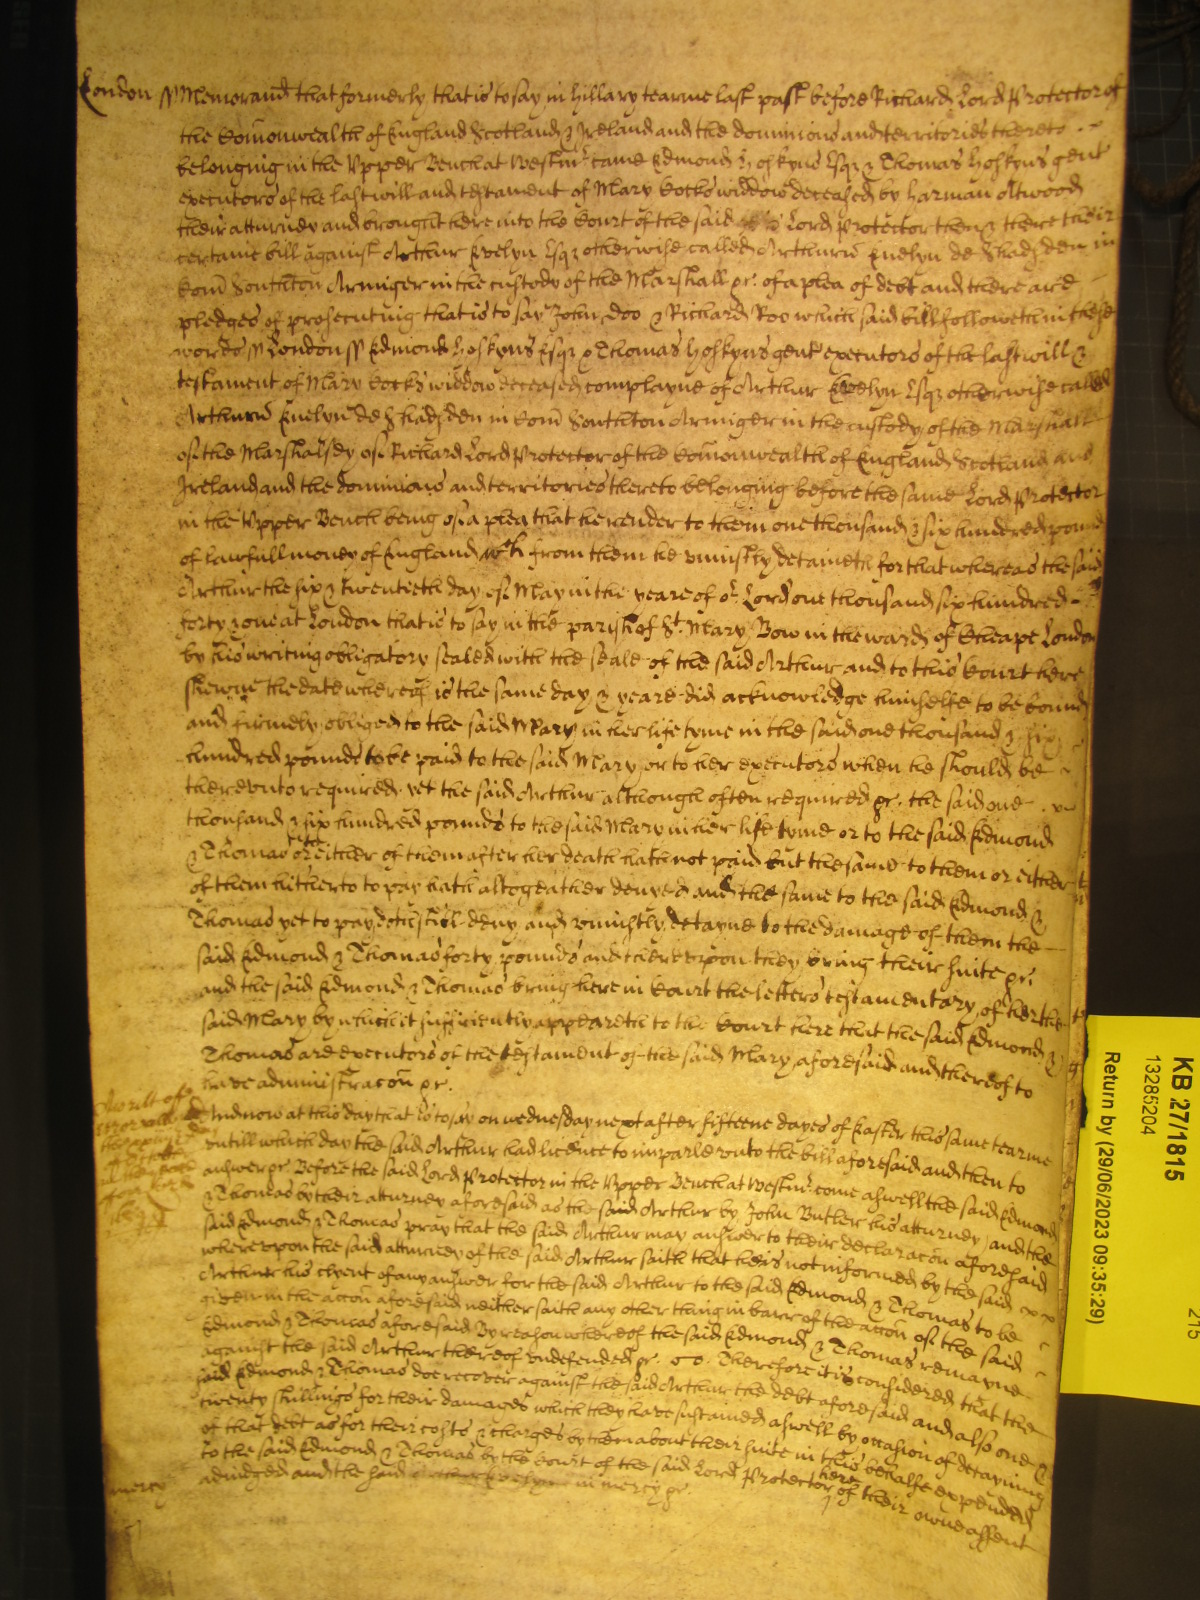 London ss Memorand that formerly that is to say in Hillary tearme last past before Richard Lord Protector of
the Comonwealth of England Scotland & Ireland and the dominions and territories thereto
belonging in the Upper Bench at Westmr came Edmond Hoskyns Esqr & Thomas Hoskyns gent
executors of the last will and testament of Mary Cocks widdow deceased by Harman Attwood
their atturney and brought here into the Court of the said Lord Protector then & there their
certaine bill against Arthur Evelyn Esqr otherwise called Arthurū Evelyn de in
Com Southton Armiger in the custody of the Marshall &c. of a plea of debt and there are
pledges of prosecuting that is to say John Doo & Richard Roo which said bill followeth in these
words ss London ss Edmond Hoskyns Esqr & Thomas Hoskyns gent executors of the last will &
testament of Mary Cocks widdow deceased complayne of Arthur Evelyn Esqr otherwise called
Arthurū Evelyn de in Com Southton Armiger in the custody of the Marshall
of the Marshalsey of Richard Lord Protector of the Comonwealth of England Scotland and
Ireland and the dominions and territories thereto belonging before the same Lord Protector
in the Upper Bench being of a plea that he render to them one thousand & six hundered pounds
of lawfull money of England wch from them he uniustly detaineth for that whereas the said
Arthur the six & twentieth day of May in the yeare of or Lord one thousand six hundred
forty & one at London that is to say in the parish of St. Mary Bow in the ward of Cheape London
by his writing obligatory sealed with the seale of the said Arthur and to this Court here
shewne the date whereof is the same day & yeare did acknowledge himselfe to be bound
and firmely obliged to the said Mary in her life tyme in the said one thousand & six
hundred pounds to be paid to the said Mary or to her executors when he should be
thereunto required yet the said Arthur although often required &c. the said one
thousand & six hundred pounds to the said Mary in her life tyme or to the said Edmond
& Thomas or either of them after her death hath not paid but the same to them or either
of them hitherto to pay hath altogeather denyed and the same to the said Edmond &
Thomas yet to pay doth still deny and uniustly detayne to the damage of them the
said Edmond & Thomas forty pounds and thereupon they bring their suite &c.
and the said Edmond & Thomas bring here in Court the letters testamentary of her the
said Mary by which it sufficiently appeareth to the Court here that the said Edmond &
Thomas are executors of the testament of the said Mary aforesaid and thereof to
have administracon &c.
And now at this day that is to say on wednesday next after fifteene dayes of Easter this same tearme
untill which day the said Arthur had licence to imparle unto the bill aforesaid and then to
answer &c. Before the said Lord Protector in the Upper Bench at Westmr come aswell the said Edmond
& Thomas by their atturney aforesaid as the said Arthur by John Butler his atturney and the
said Edmond & Thomas pray that the said Arthur may answer to their declaracon aforesaid
whereupon the said atturney of the said Arthur saith that he is not informed by the said
Arthur his clyent of any answer for the said Arthur to the said Edmond & Thomas to be
given in the accon aforesaid neither saith any other thing in barr of the accon of the said
Edmond & Thomas aforesaid By reason whereof the said Edmond & Thomas remayne
against the said Arthur thereof undefended &c. Therefore it is considered that the
said Edmond & Thomas doe recover against the said Arthur the debt aforesaid and also
twenty shillings for their damages which they have sustained aswell by occasion of detayning
of that debt as for their costs & charges by them about their suite in this behalfe expended
to the said Edmond & Thomas by the Court of the said Lord Protector here of their owne assent
adiudged and the said in mercy &c.
mercy
KB 27/1815
13285204
Return by (29/06/2023 09:35:29)
215